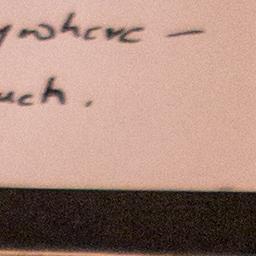 ywhere –
uch.